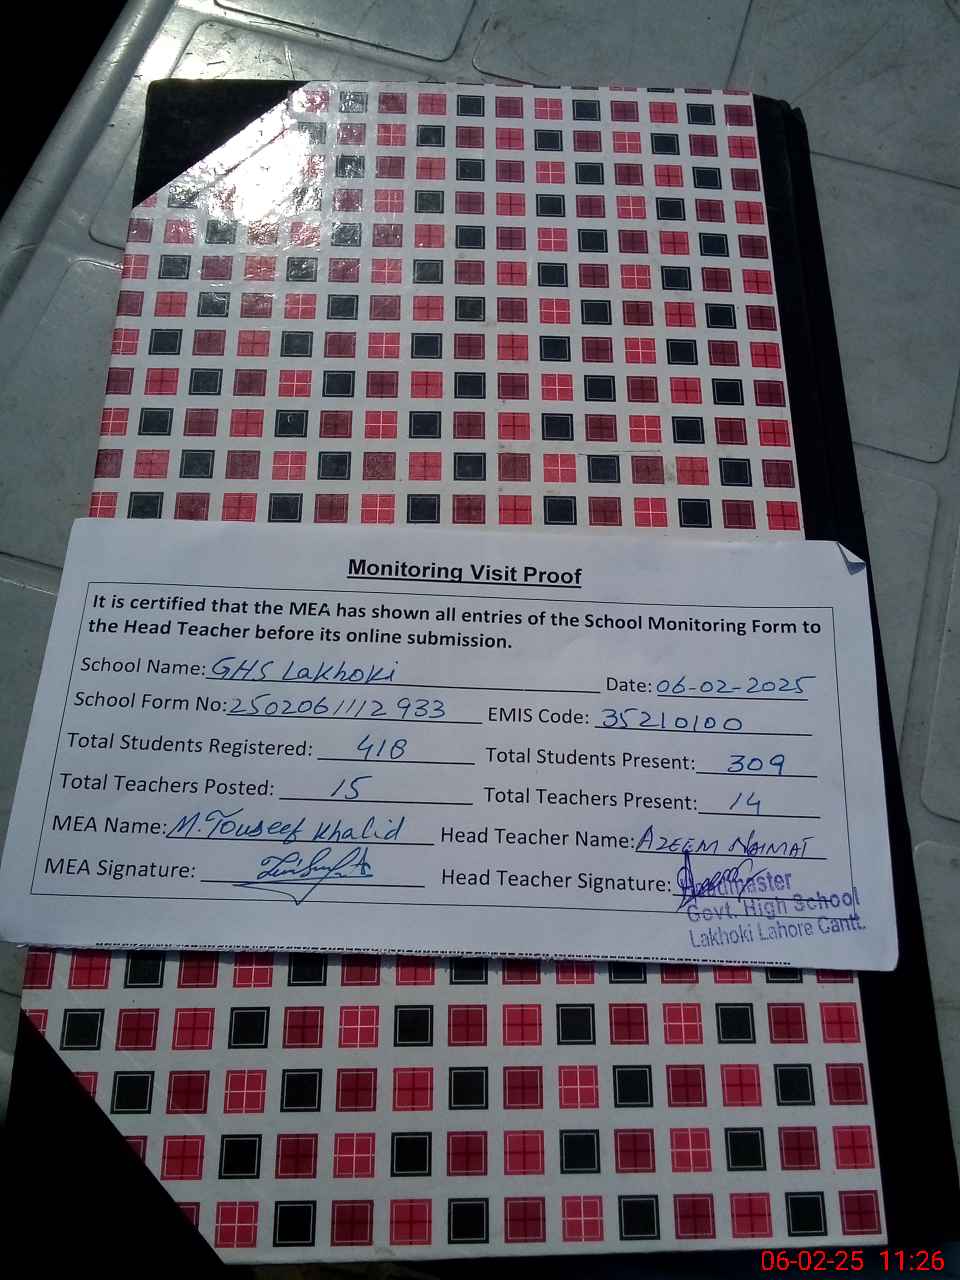 Monitoring Visit Proof
It is certified that the MEA has shown all entries of the School Monitoring Form to
the Head Teacher before its online submission.
School Name: GHS Lakhoki Date: 06-02-2025
School Form No: 2502061112933 EMIS Code: 35210100
Total Students Registered: 418 Total Students Present: 309
Total Teachers Posted: 15 Total Teachers Present: 14
MEA Name: M. Touseef Khalid Head Teacher Name: AZEEM NAIMAT
MEA Signature: Head Teacher Signature:
Headmaster
Govt. High School
Lakhoki Lahore Cantt.
06-02-25 11:26